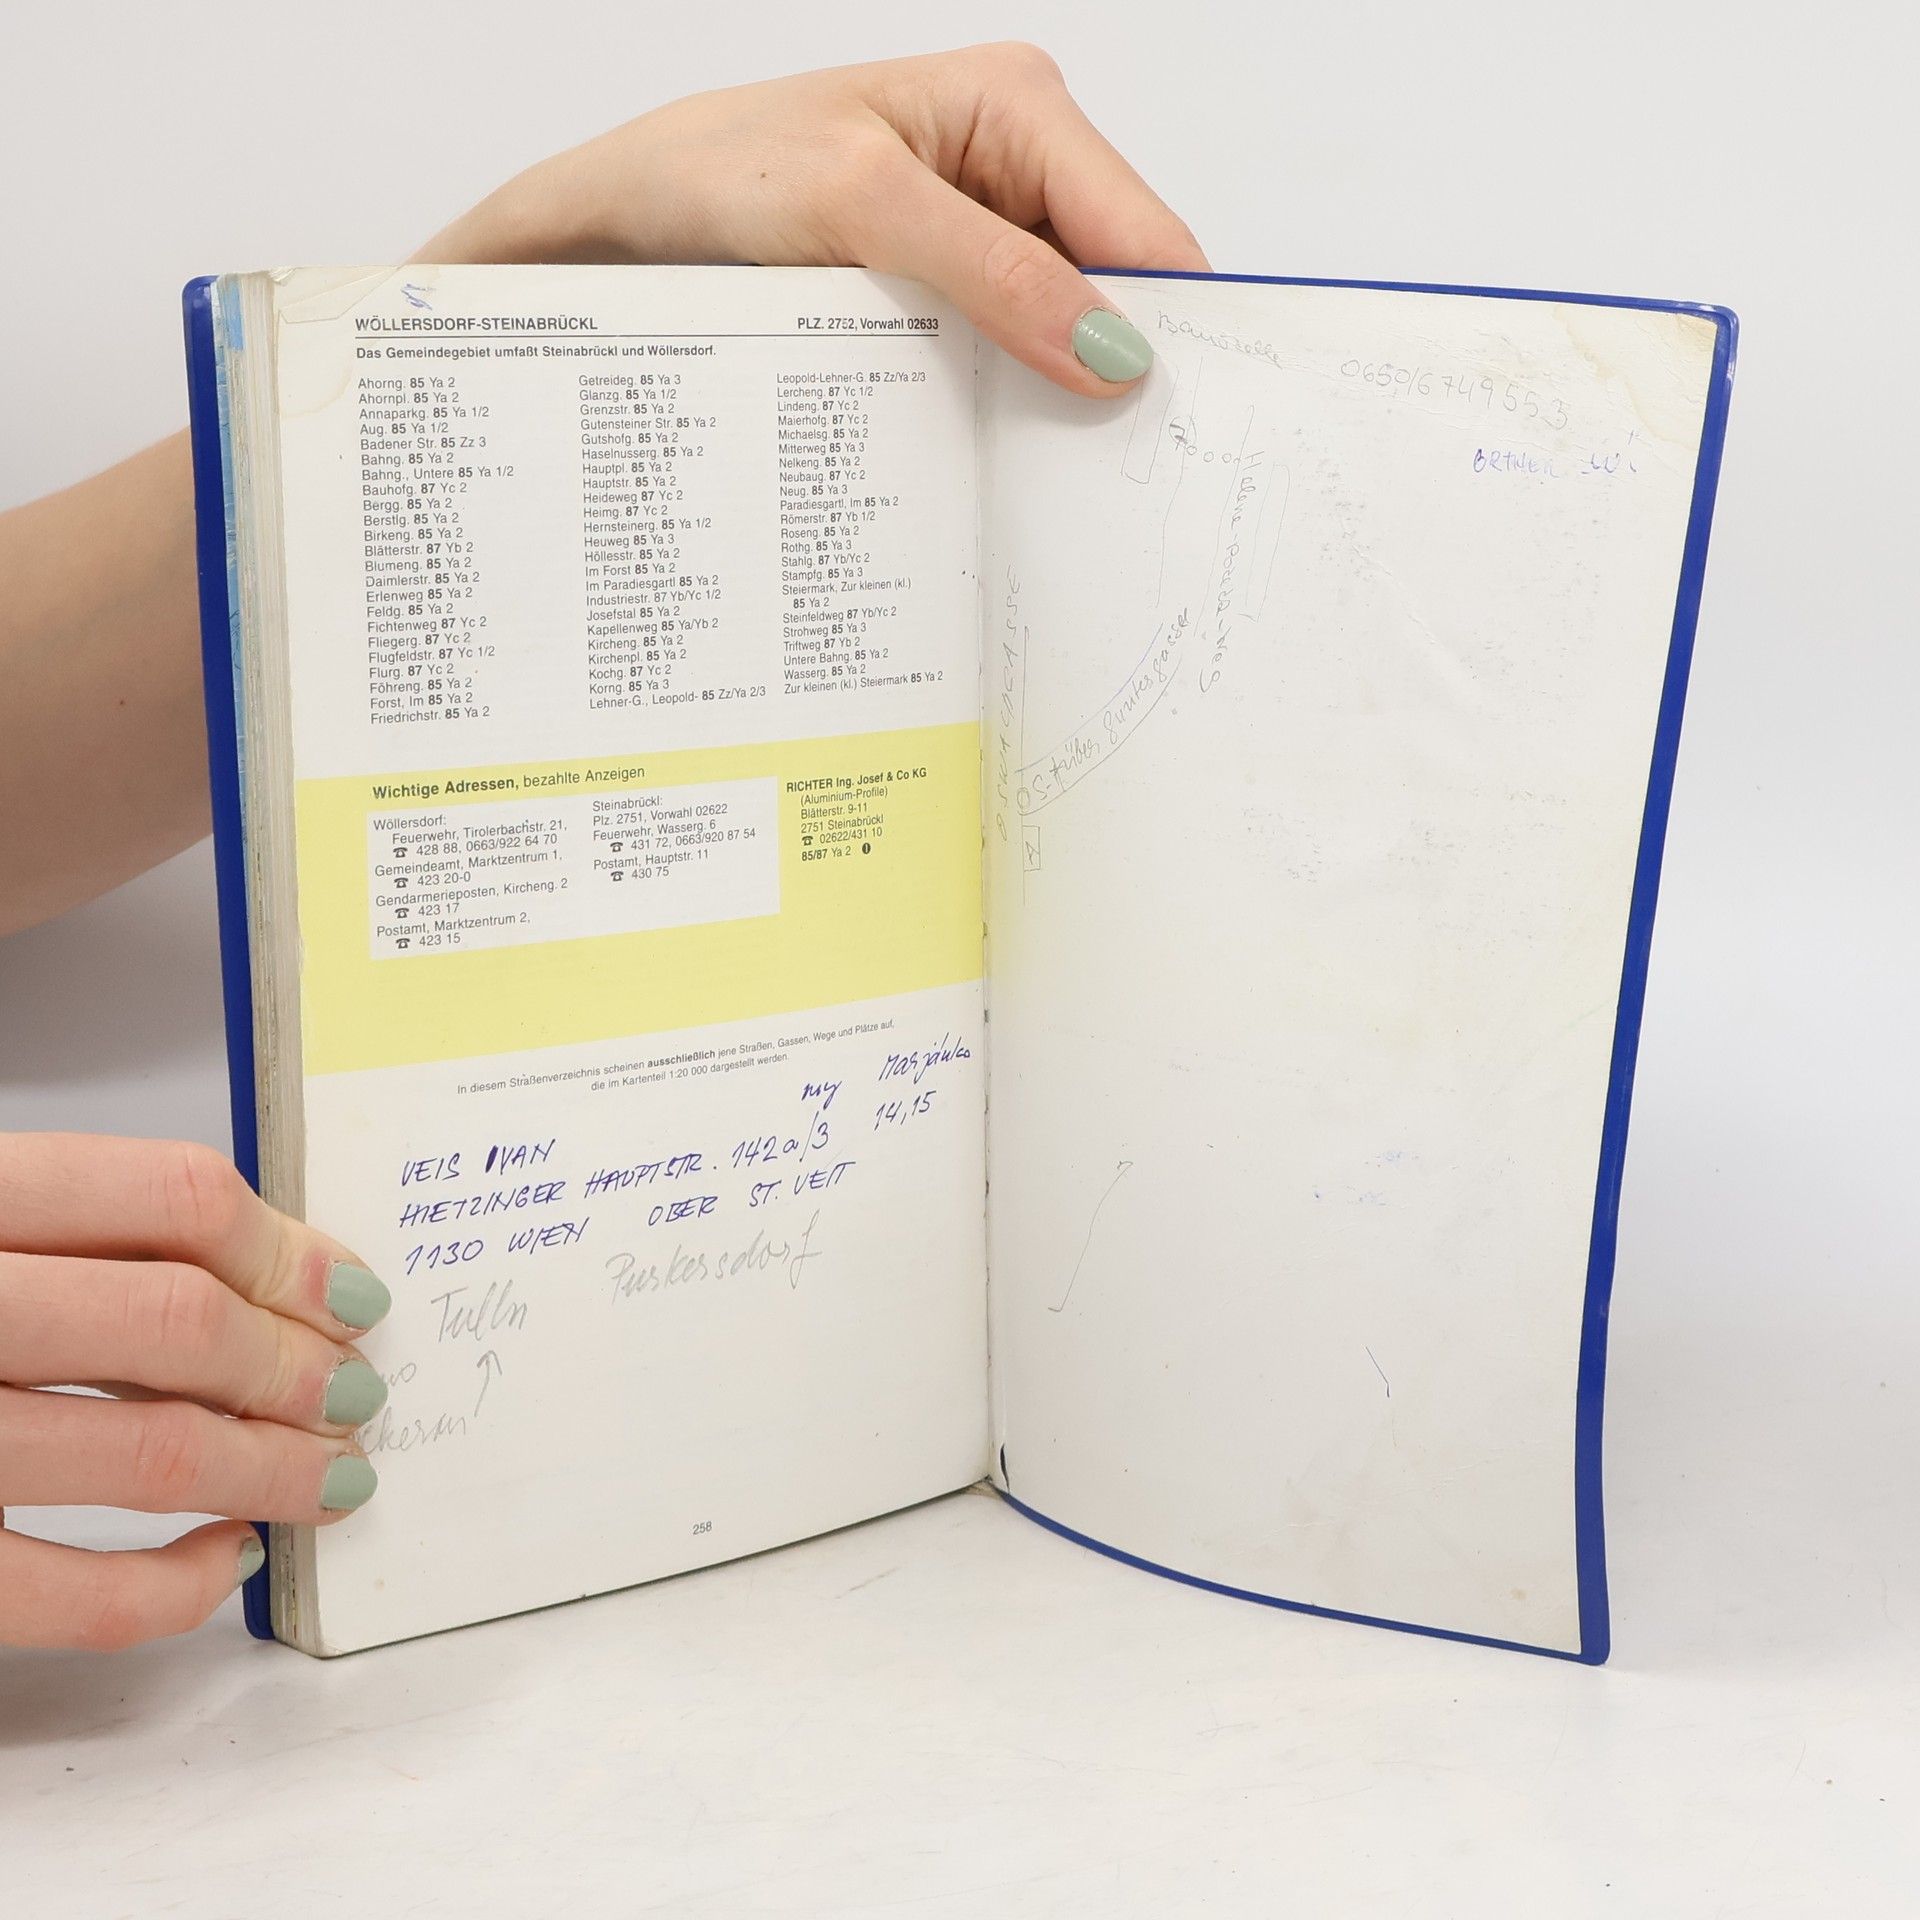 WÖLLERSDORF-STEINABRÜCKL PLZ. 2752, Vorwahl 02633
Das Gemeindegebiet umfaßt Steinabrückl und Wöllersdorf.
Ahorng. 85 Ya 2
Ahornpl. 85 Ya 2
Annaparkg. 85 Ya 1/2
Aug. 85 Ya 1/2
Badener Str. 85 Zz 3
Bahng. 85 Ya 2
Bahng., Untere 85 Ya 1/2
Bauhofg. 87 Yc 2
Bergg. 85 Ya 2
Berstlg. 85 Ya 2
Birkeng. 85 Ya 2
Blätterstr. 87 Yb 2
Blumeng. 85 Ya 2
Daimlerstr. 85 Ya 2
Erlenweg 85 Ya 2
Feldg. 85 Ya 2
Fichtenweg 87 Yc 2
Fliegerg. 87 Yc 2
Flugfeldstr. 87 Yc 1/2
Flurg. 87 Yc 2
Föhreng. 85 Ya 2
Forst, Im 85 Ya 2
Friedrichstr. 85 Ya 2
Getreideg. 85 Ya 3
Glanzg. 85 Ya 1/2
Grenzstr. 85 Ya 2
Gutensteiner Str. 85 Ya 2
Gutshofg. 85 Ya 2
Haselnusserg. 85 Ya 2
Hauptpl. 85 Ya 2
Hauptstr. 85 Ya 2
Heideweg 87 Yc 2
Heimg. 87 Yc 2
Hernsteinerg. 85 Ya 1/2
Heuweg 85 Ya 3
Höllesstr. 85 Ya 2
Im Forst 85 Ya 2
Im Paradiesgartl 85 Ya 2
Industriestr. 87 Yb/Yc 1/2
Josefstal 85 Ya 2
Kapellenweg 85 Ya/Yb 2
Kircheng. 85 Ya 2
Kirchenpl. 85 Ya 2
Kochg. 87 Yc 2
Korng. 85 Ya 3
Lehner-G., Leopold- 85 Zz/Ya 2/3
Leopold-Lehner-G. 85 Zz/Ya 2/3
Lercheng. 87 Yc 1/2
Lindeng. 87 Yc 2
Maierhofg. 87 Yc 2
Michaelsg. 85 Ya 2
Mitterweg 85 Ya 3
Nelkeng. 85 Ya 2
Neubaug. 87 Yc 2
Neug. 85 Ya 3
Paradiesgartl, Im 85 Ya 2
Römerstr. 87 Yb 1/2
Roseng. 85 Ya 2
Rothg. 85 Ya 3
Stahlg. 87 Yb/Yc 2
Stampfg. 85 Ya 3
Steiermark, Zur kleinen (kl.)
85 Ya 2
Steinfeldweg 87 Yb/Yc 2
Strohweg 85 Ya 3
Triftweg 87 Yb 2
Untere Bahng. 85 Ya 2
Wasserg. 85 Ya 2
Zur kleinen (kl.) Steiermark 85 Ya 2
Wichtige Adressen, bezahlte Anzeigen
Wöllersdorf:
Feuerwehr, Tirolerbachstr. 21,
☎ 428 88, 0663/922 64 70
Gemeindeamt, Marktzentrum 1,
☎ 423 20-0
Gendarmerieposten, Kircheng. 2
☎ 423 17
Postamt, Marktzentrum 2,
☎ 423 15
Steinabrückl:
Plz. 2751, Vorwahl 02622
Feuerwehr, Wasserg. 6
☎ 431 72, 0663/920 87 54
Postamt, Hauptstr. 11
☎ 430 75
RICHTER Ing. Josef & Co KG
(Aluminium-Profile)
Blätterstr. 9-11
2751 Steinabrückl
☎ 02622/431 10
85/87 Ya 2
In diesem Straßenverzeichnis scheinen ausschließlich jene Straßen, Gassen, Wege und Plätze auf,
die im Kartenteil 1:20 000 dargestellt werden.
VEIS IVAN
HIETZINGER HAUPTSTR. 142a/3 14,15
1130 WIEN OBER ST. VEIT
Tulln Purkersdorf
258
0650/6749553
ORTNER